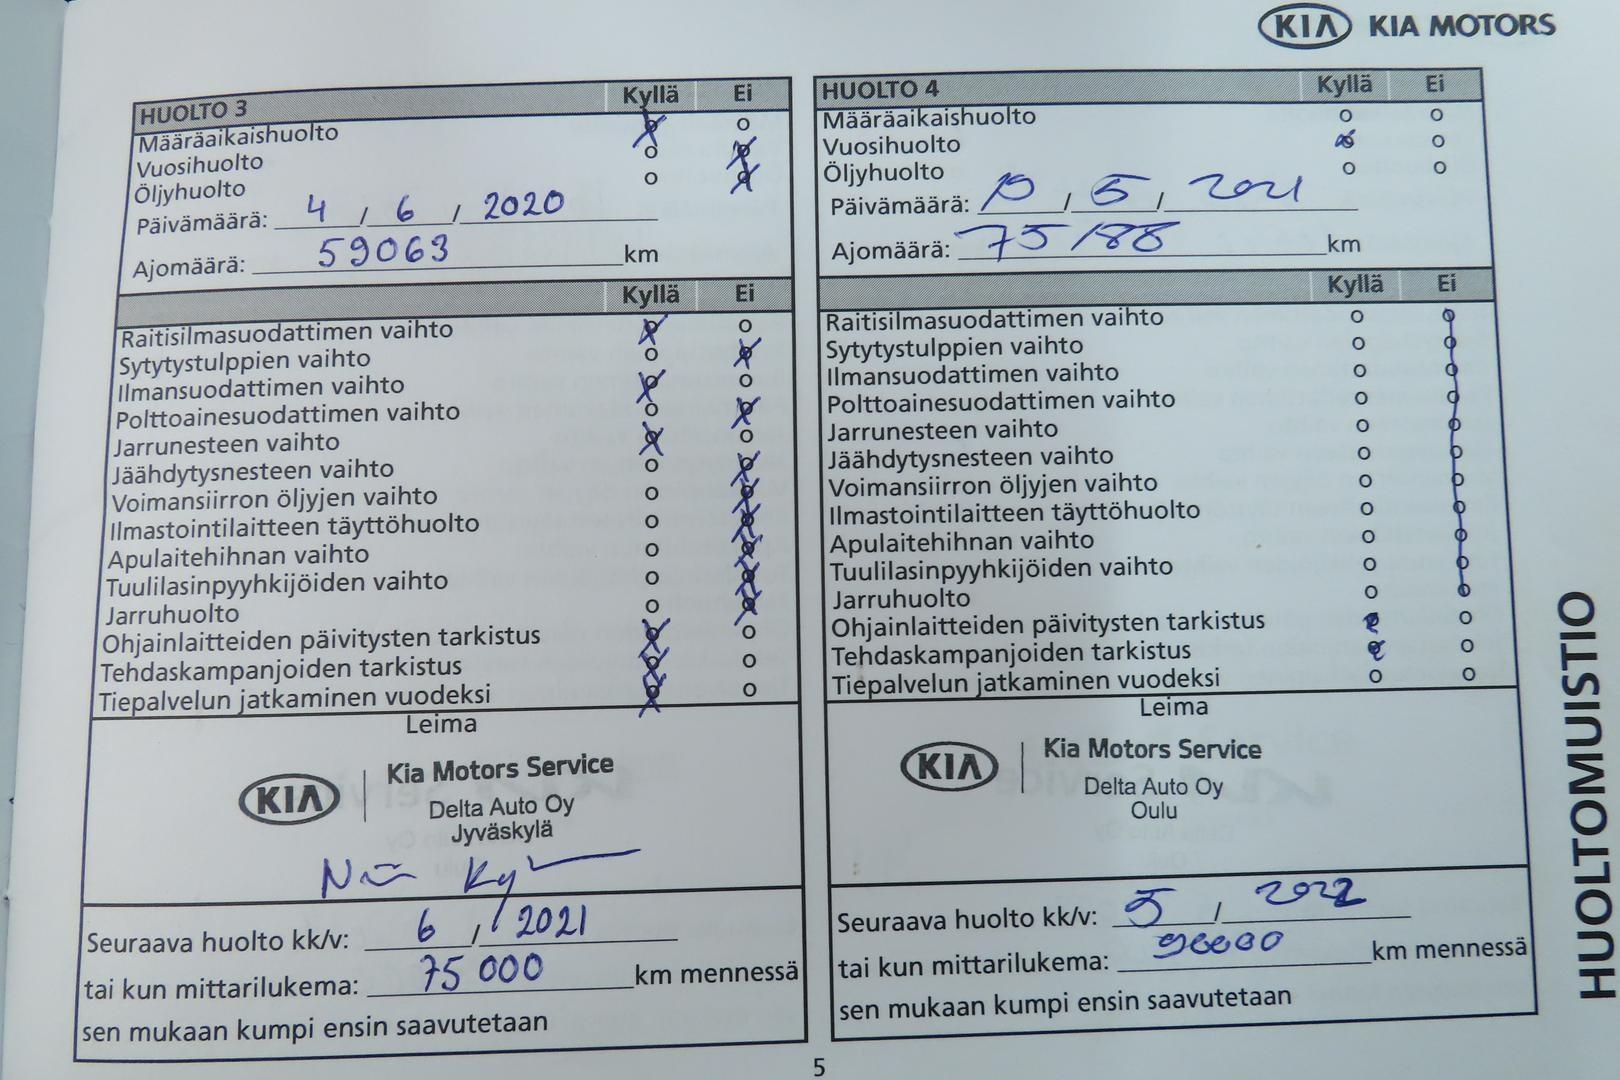 KIA KIA MOTORS
HUOLTO 3 Kyllä Ei
Määräaikaishuolto
Vuosihuolto
Öljyhuolto
Päivämäärä: 4 / 6 / 2020
Ajomäärä: 59063 km
Kyllä Ei
Raitisilmasuodattimen vaihto
Sytytystulppien vaihto
Ilmansuodattimen vaihto
Polttoainesuodattimen vaihto
Jarrunesteen vaihto
Jäähdytysnesteen vaihto
Voimansiirron öljyjen vaihto
Ilmastointilaitteen täyttöhuolto
Apulaitehihnan vaihto
Tuulilasinpyyhkijöiden vaihto
Jarruhuolto
Ohjainlaitteiden päivitysten tarkistus
Tehdaskampanjoiden tarkistus
Tiepalvelun jatkaminen vuodeksi
Leima
KIA Kia Motors Service
Delta Auto Oy
Jyväskylä
Seuraava huolto kk/v: 6 / 2021
tai kun mittarilukema: 75 000 km mennessä
sen mukaan kumpi ensin saavutetaan
HUOLTO 4 Kyllä Ei
Määräaikaishuolto
Vuosihuolto
Öljyhuolto
Päivämäärä: 10 / 5 / 2021
Ajomäärä: 75188 km
Kyllä Ei
Raitisilmasuodattimen vaihto
Sytytystulppien vaihto
Ilmansuodattimen vaihto
Polttoainesuodattimen vaihto
Jarrunesteen vaihto
Jäähdytysnesteen vaihto
Voimansiirron öljyjen vaihto
Ilmastointilaitteen täyttöhuolto
Apulaitehihnan vaihto
Tuulilasinpyyhkijöiden vaihto
Jarruhuolto
Ohjainlaitteiden päivitysten tarkistus
Tehdaskampanjoiden tarkistus
Tiepalvelun jatkaminen vuodeksi
Leima
KIA Kia Motors Service
Delta Auto Oy
Oulu
Seuraava huolto kk/v: 5 / 2022
tai kun mittarilukema: km mennessä
sen mukaan kumpi ensin saavutetaan
HUOLTOMUISTIO
5